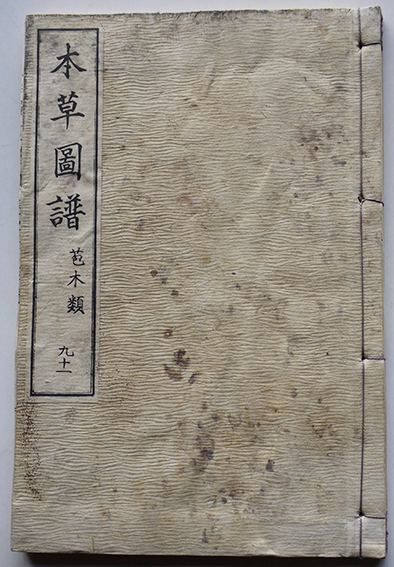 本草圖譜 苞木類 九十一